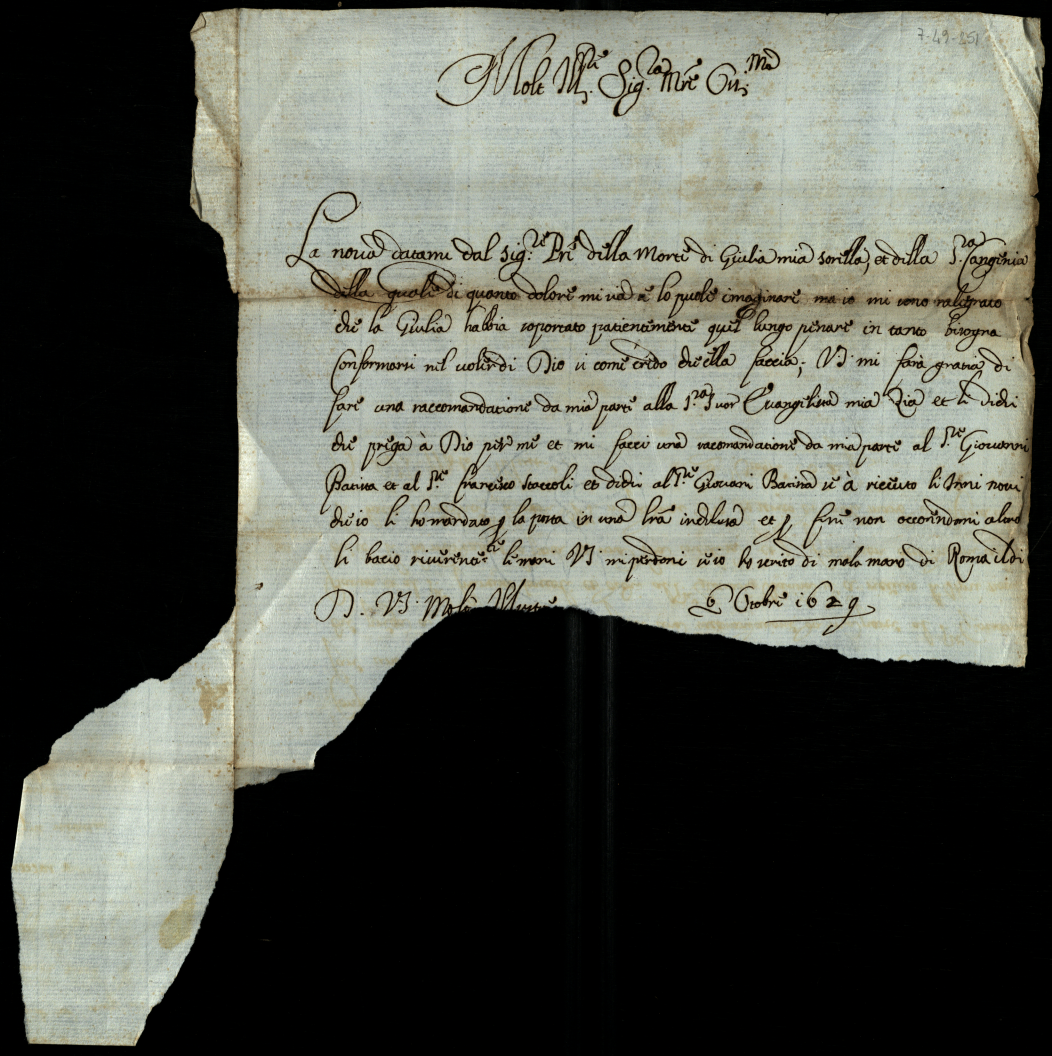 7-49-851
Molt Ill.re Sig.ra M.re Oss.ma
La nova datami dal Sig.re P.re della Morte di Giulia mia sorella, et della S.ra
della quale di quanto dolore mi sia se lo puole imaginare ma io mi sono ralegrato
che la Giulia habbia soportato patientemente quel lungo penare in tanto bisogna
Conformarsi nel voler di Dio si come credo che ella faccia; VS mi farà gratia di
fare una raccomandatione da mia parte alla S.ra Suor Evangelista mia Zia et li dichi
che prega à Dio per me et mi facci una racomandatione da mia parte al S.re Giovanni
Batista et al S.re Francesco Staccoli et dichi al S.re Giovani Batista se à riceuto li novi
che io li ho mandato p la posta in una lra inclusa et p fine non occorendomi altro
li bacio riverente.te le mani VS mi perdoni se io ho scrito di mala mano di Roma il di
D. VS. Molto Illustre 6 Otobre 1629